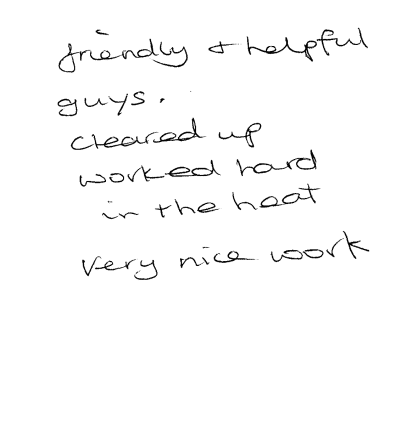 friendly + helpful
guys.
cleared up
worked hard
in the heat
very nice work